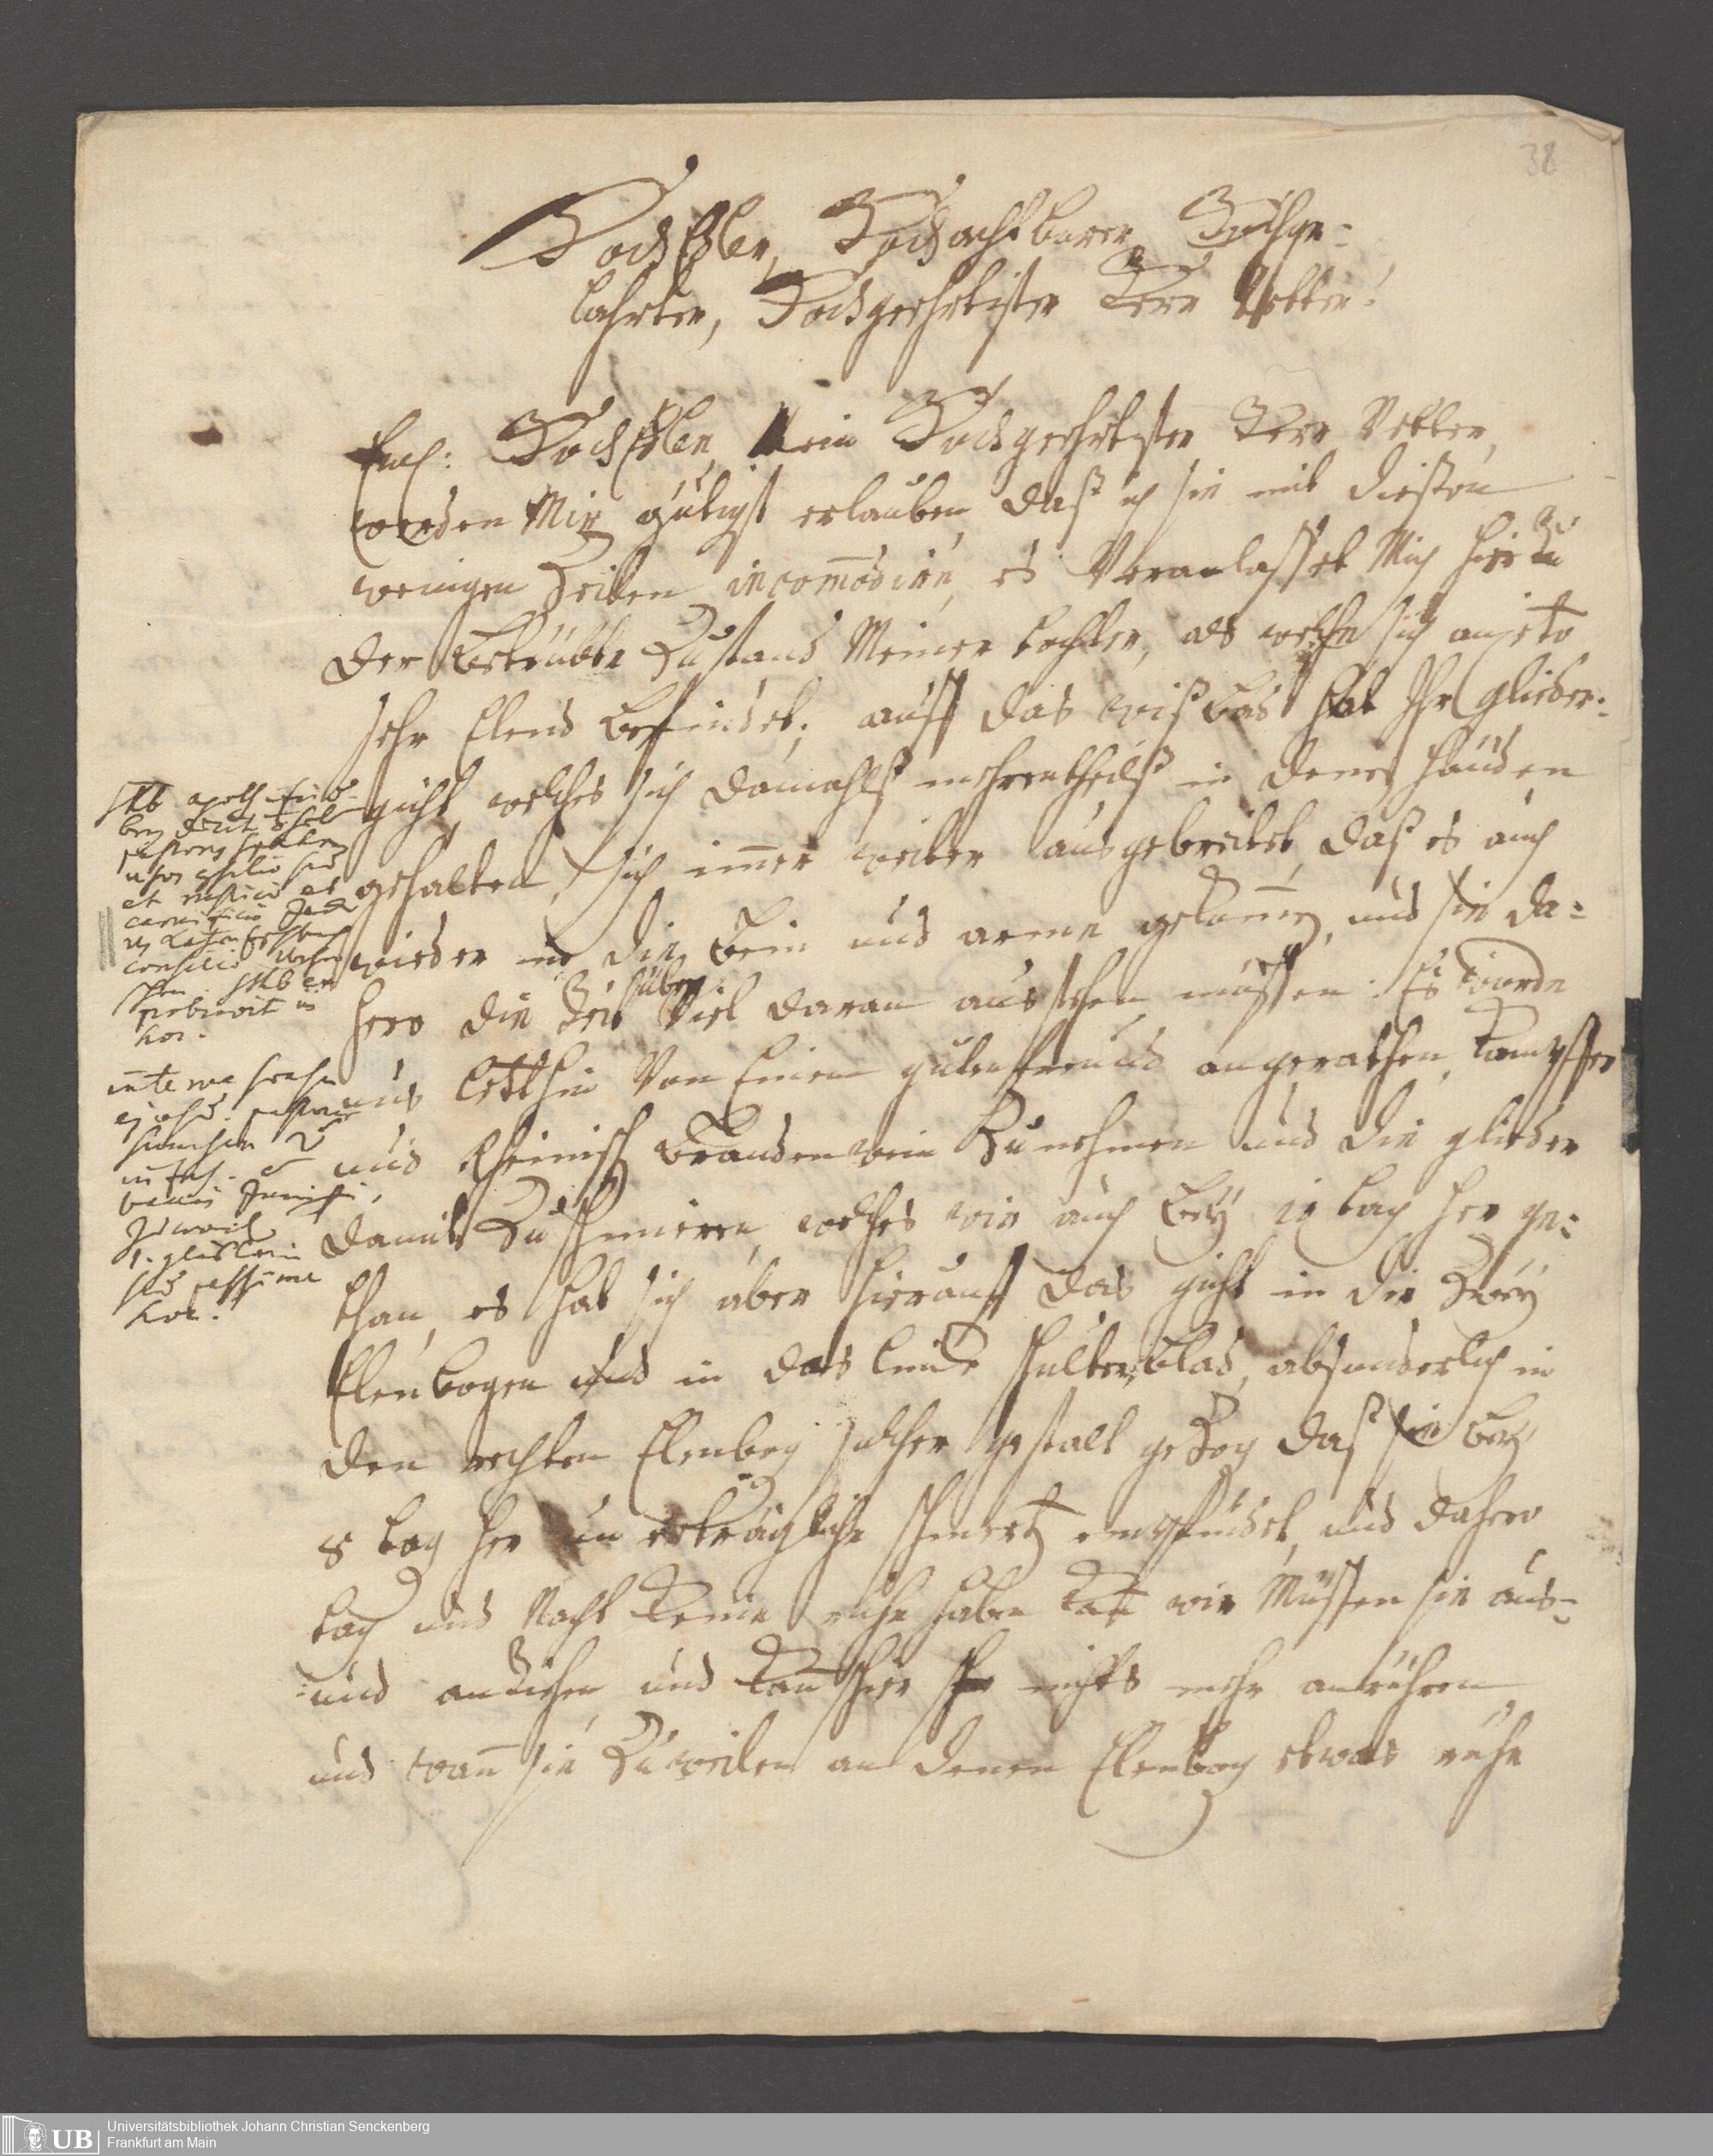 38
HochEdler, Hochachtbarer, Hochge-
lahrter, Hochgeehrtister Herr Vetter!
Ew: HochEdlen, Mein Hochgeehrtster Herr Vetter,
werden Mir gütigst erlauben, daß ich sie mit diesten
wenigen Zeilen incom̄odire, es Veranlasset Mich hierzu
der betrübte Zustand Meiner tochter, als welche sich anjetzo
sehr Elend befindet; auff das wißbad hat Ihr glieder-
gicht, welches sich damahlß mehrentheilß in denen händen
gehalten, sich im̄er weiter ausgebreitet, daß es auch
wieder in die Bein und arme gekom̄en, und sie da-
hero die Zeit hüber Viel daran ausstehen müssen. Es wurde
uns letthin Von Einem guten freund angerathen, Kampffer
und Rheinisch Brandenwein Zu nehmen und die glieder
damit Zu schmieren, welches wir auch bey 14 tag her ge-
than, es hat sich aber hierauff das gicht in die Zwey
Elenbogen und in das lincke schulterblad, absonderlich in
den rechten Elenbog solcher gestalt gezog daß sie bey
8 tag her un erträgliche schmertz empfindet, und dahero
tag und Nacht keine ruhe haben kan̄ wir Müssen sie aus-
und anziehen, und kan̄ schier nichts mehr anrühren
und wan̄ sie Zuweilen an denen Elenbog etwas ruhe
et rustici et
consilio
hor.
hor.
UB
Universitätsbibliothek Johann Christian Senckenberg
Frankfurt am Main